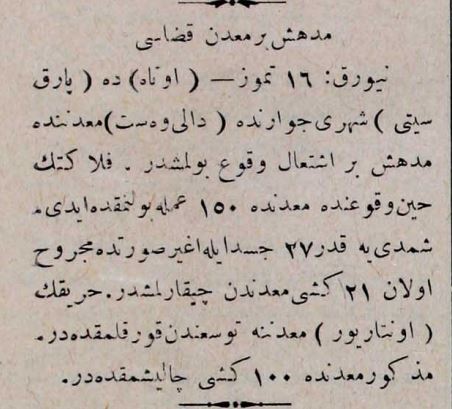 مدهش بر معدن قضاسی
نیورق: ١٦ تموز — ( اوتاه ) ده ( پارق
سیتی ) شهری جوارنده ( دالی وهست ) معدننده
مدهش بر اشتعال وقوع بولمشدر . فلاكتك
حین وقوعنده معدنده ١٥٠ عمله بولنمقده ایدی.
شمدی یه قدر ٢٧ جسد ایله اغیر صورتده مجروح
اولان ٢١ كشی معدندن چیقارلمشدر. حریقك
( اونتاریور ) معدننه توسعندن قورقلمقده در.
مذكور معدنده ١٠٠ كشی چالیشمقده در.